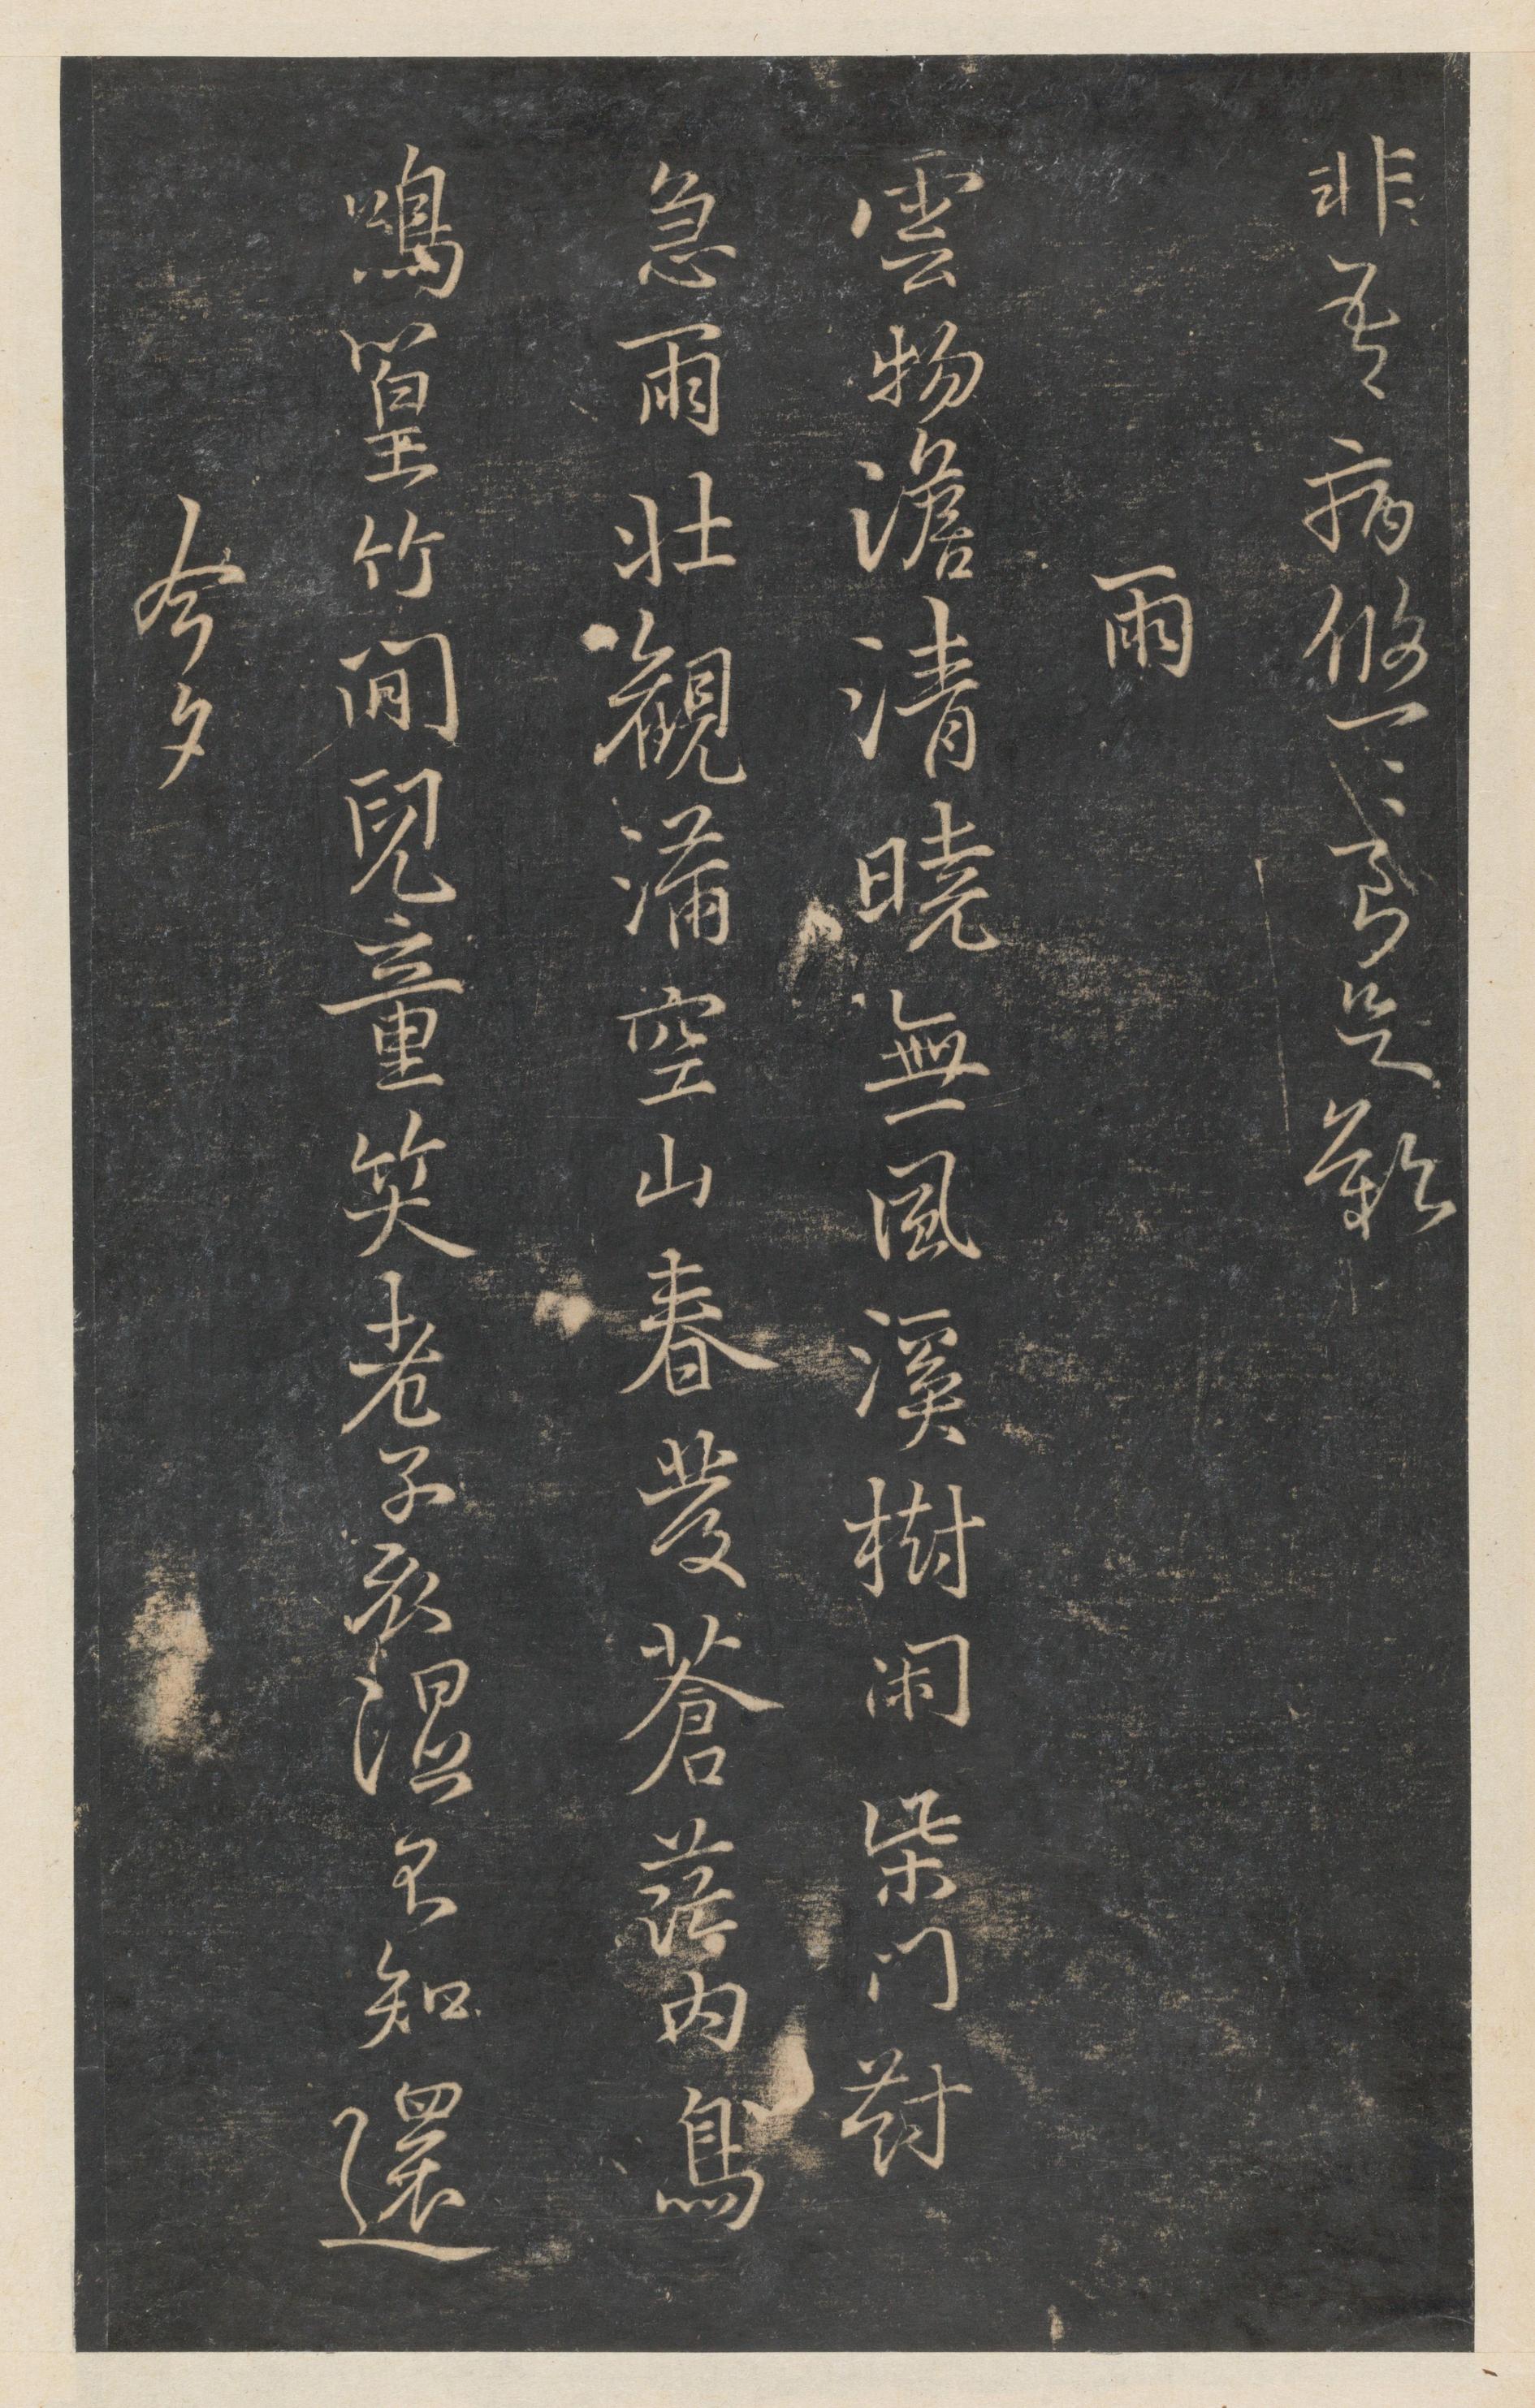 非吾病悠〻良足歎
雨
雲物澹清曉無風溪樹閑柴門對
急雨壯觀滿空山春發蒼茫內鳥
鳴篁竹間兒童笑老子衣濕不知還
今夕